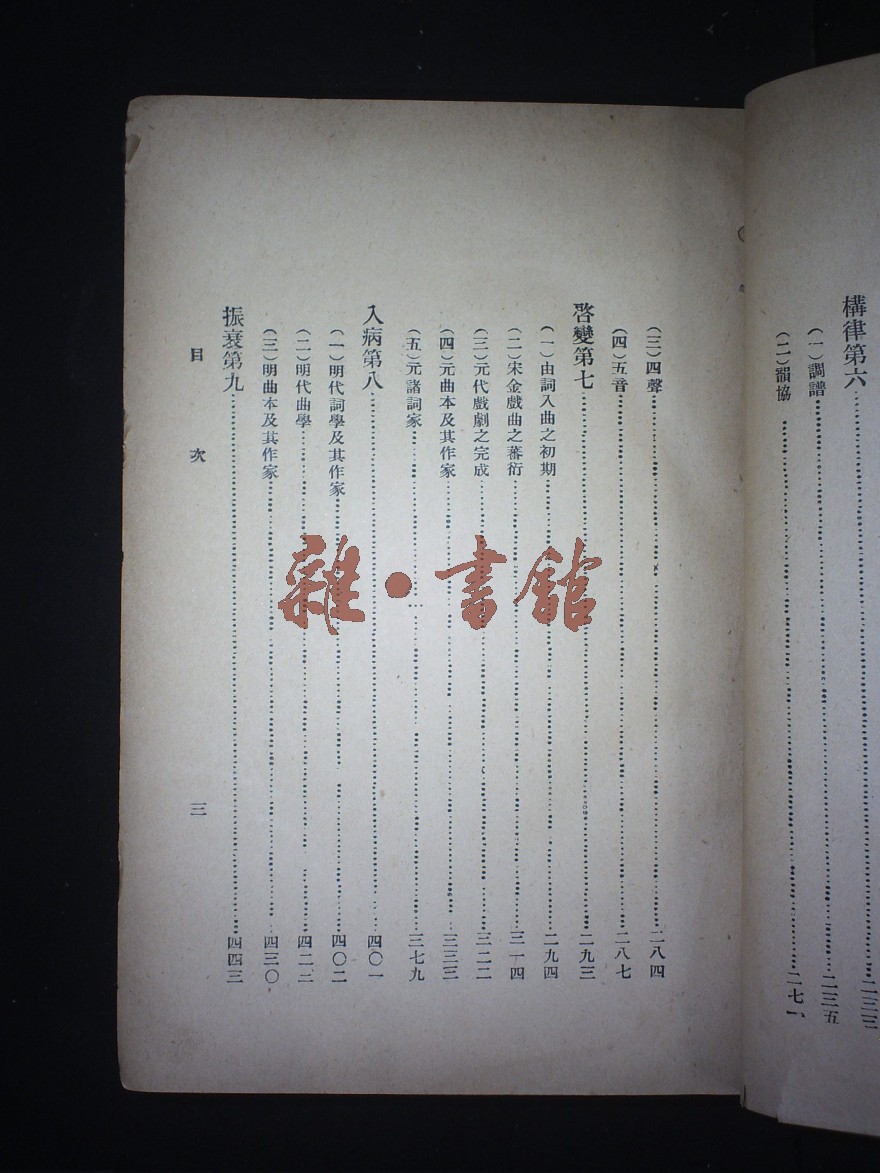 構律第六
(一)調譜……二三五
(二)韻協……二七一
(三)四聲……二八四
(四)五音……二八七
啓變第七……二九三
(一)由詞入曲之初期……二九四
(二)宋金戲曲之蕃衍……三一四
(三)元代戲劇之完成……三二二
(四)元曲本及其作家……三三三
(五)元諸詞家……三七九
入病第八……四〇一
(一)明代詞學及其作家……四〇二
(二)明代曲學
(三)明曲本及其作家……四三〇
振衰第九……四四三
目次
三
雜·書館